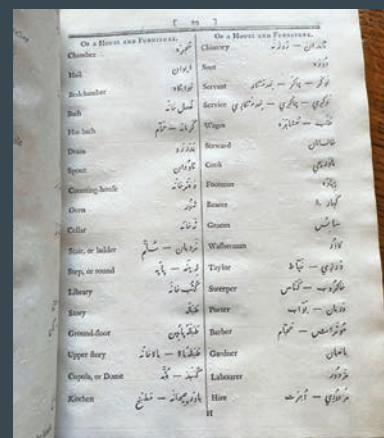 OF A HOUSE AND FURNITURE.
Chamber حجره
Hall ایوان
Bedchamber خوابگاه
Bath غسل خانه
Hot bath گرمابه — حمّام
Drain
Spout ناودان
Counting-house دفترخانه
Oven تنور
Cellar ته خانه
Stair, or ladder نردبان — سُلّم
Step, or round زینه — پایه
Library کتب خانه
Story طبقه
Ground-floor طبقهٔ پایین
Upper story طبقهٔ بالا — بالاخانه
Cupola, or Dome گنبد — قبّه
Kitchen باورچیخانه — مطبخ
OF A HOUSE AND FURNITURE.
Chimney
Soot دوده
Servant نوکر — چاکر — خدمتگار
Service نوکري — چاکري — خدمتگاري
Wages طلب — مشاهره
Steward خانسامان
Cook باورچي
Footman پیاده
Bearer کهار
Groom سائس
Washerman گازر
Taylor درزي — خیّاط
Sweeper خاکروب — کنّاس
Porter دربان — بوّاب
Barber موتراش — حجّام
Gardner باغبان
Labourer مزدور
Hire مزدوري — اجرت
H